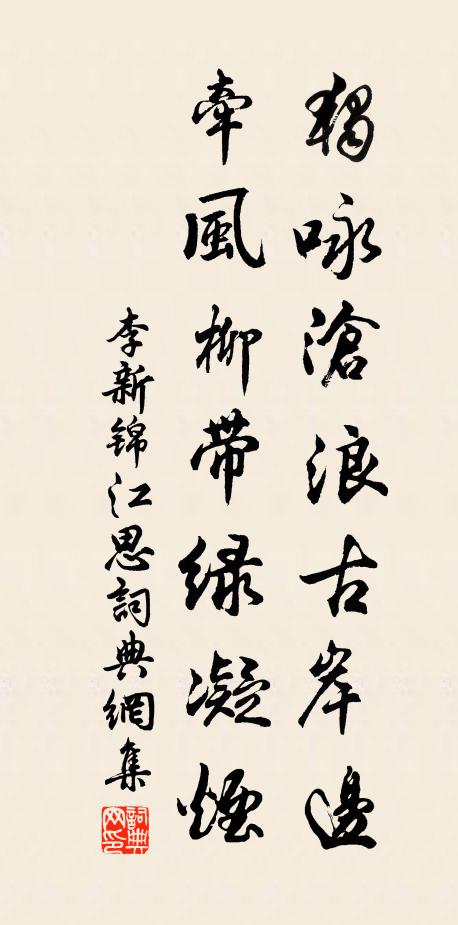 獨咏滄浪古岸邊
牽風柳帶绿凝煙
李新锦江思詞典網集
詞典网印